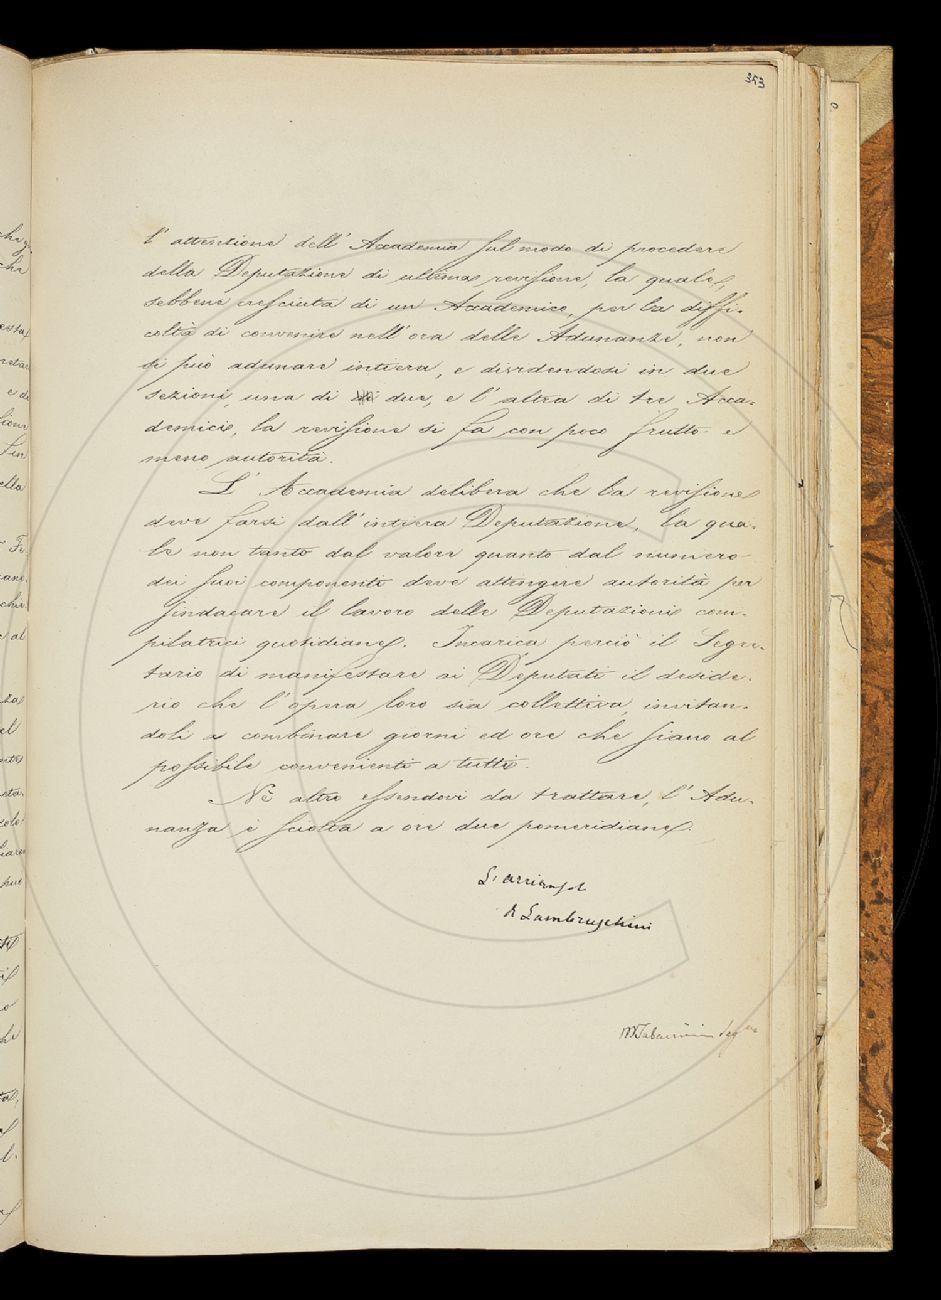 353
l' attenzione dell' Accademia sul modo di procedere
della Deputazione di ultima revisione, la quale,
sebbene cresciuta di un Accademico, per la diffi-
coltà di convenire nell' ora delle Adunanze, non
si può adunare intiera, e dividendosi in due
sezioni, una di due, e l' altra di tre Acca-
demici, la revisione si fa con poco frutto e
meno autorità.
L' Accademia delibera che la revisione
deve farsi dall' intiera Deputazione, la qua-
le non tanto dal valore quanto dal numero
dei suoi componenti deve attingere autorità per
sindacare il lavoro delle Deputazioni com-
pilatrici quotidiane. Incarica perciò il Segre-
tario di manifestare ai Deputati il deside-
rio che l' opera loro sia collettiva, invitan-
doli a combinare giorni ed ore che siano al
possibile convenienti a tutti.
Nè altro essendovi da trattare, l' Adu-
nanza è sciolta a ore due pomeridiane.
L' arciconsolo
R Lambruschini
M Tabarrini Seg.rio